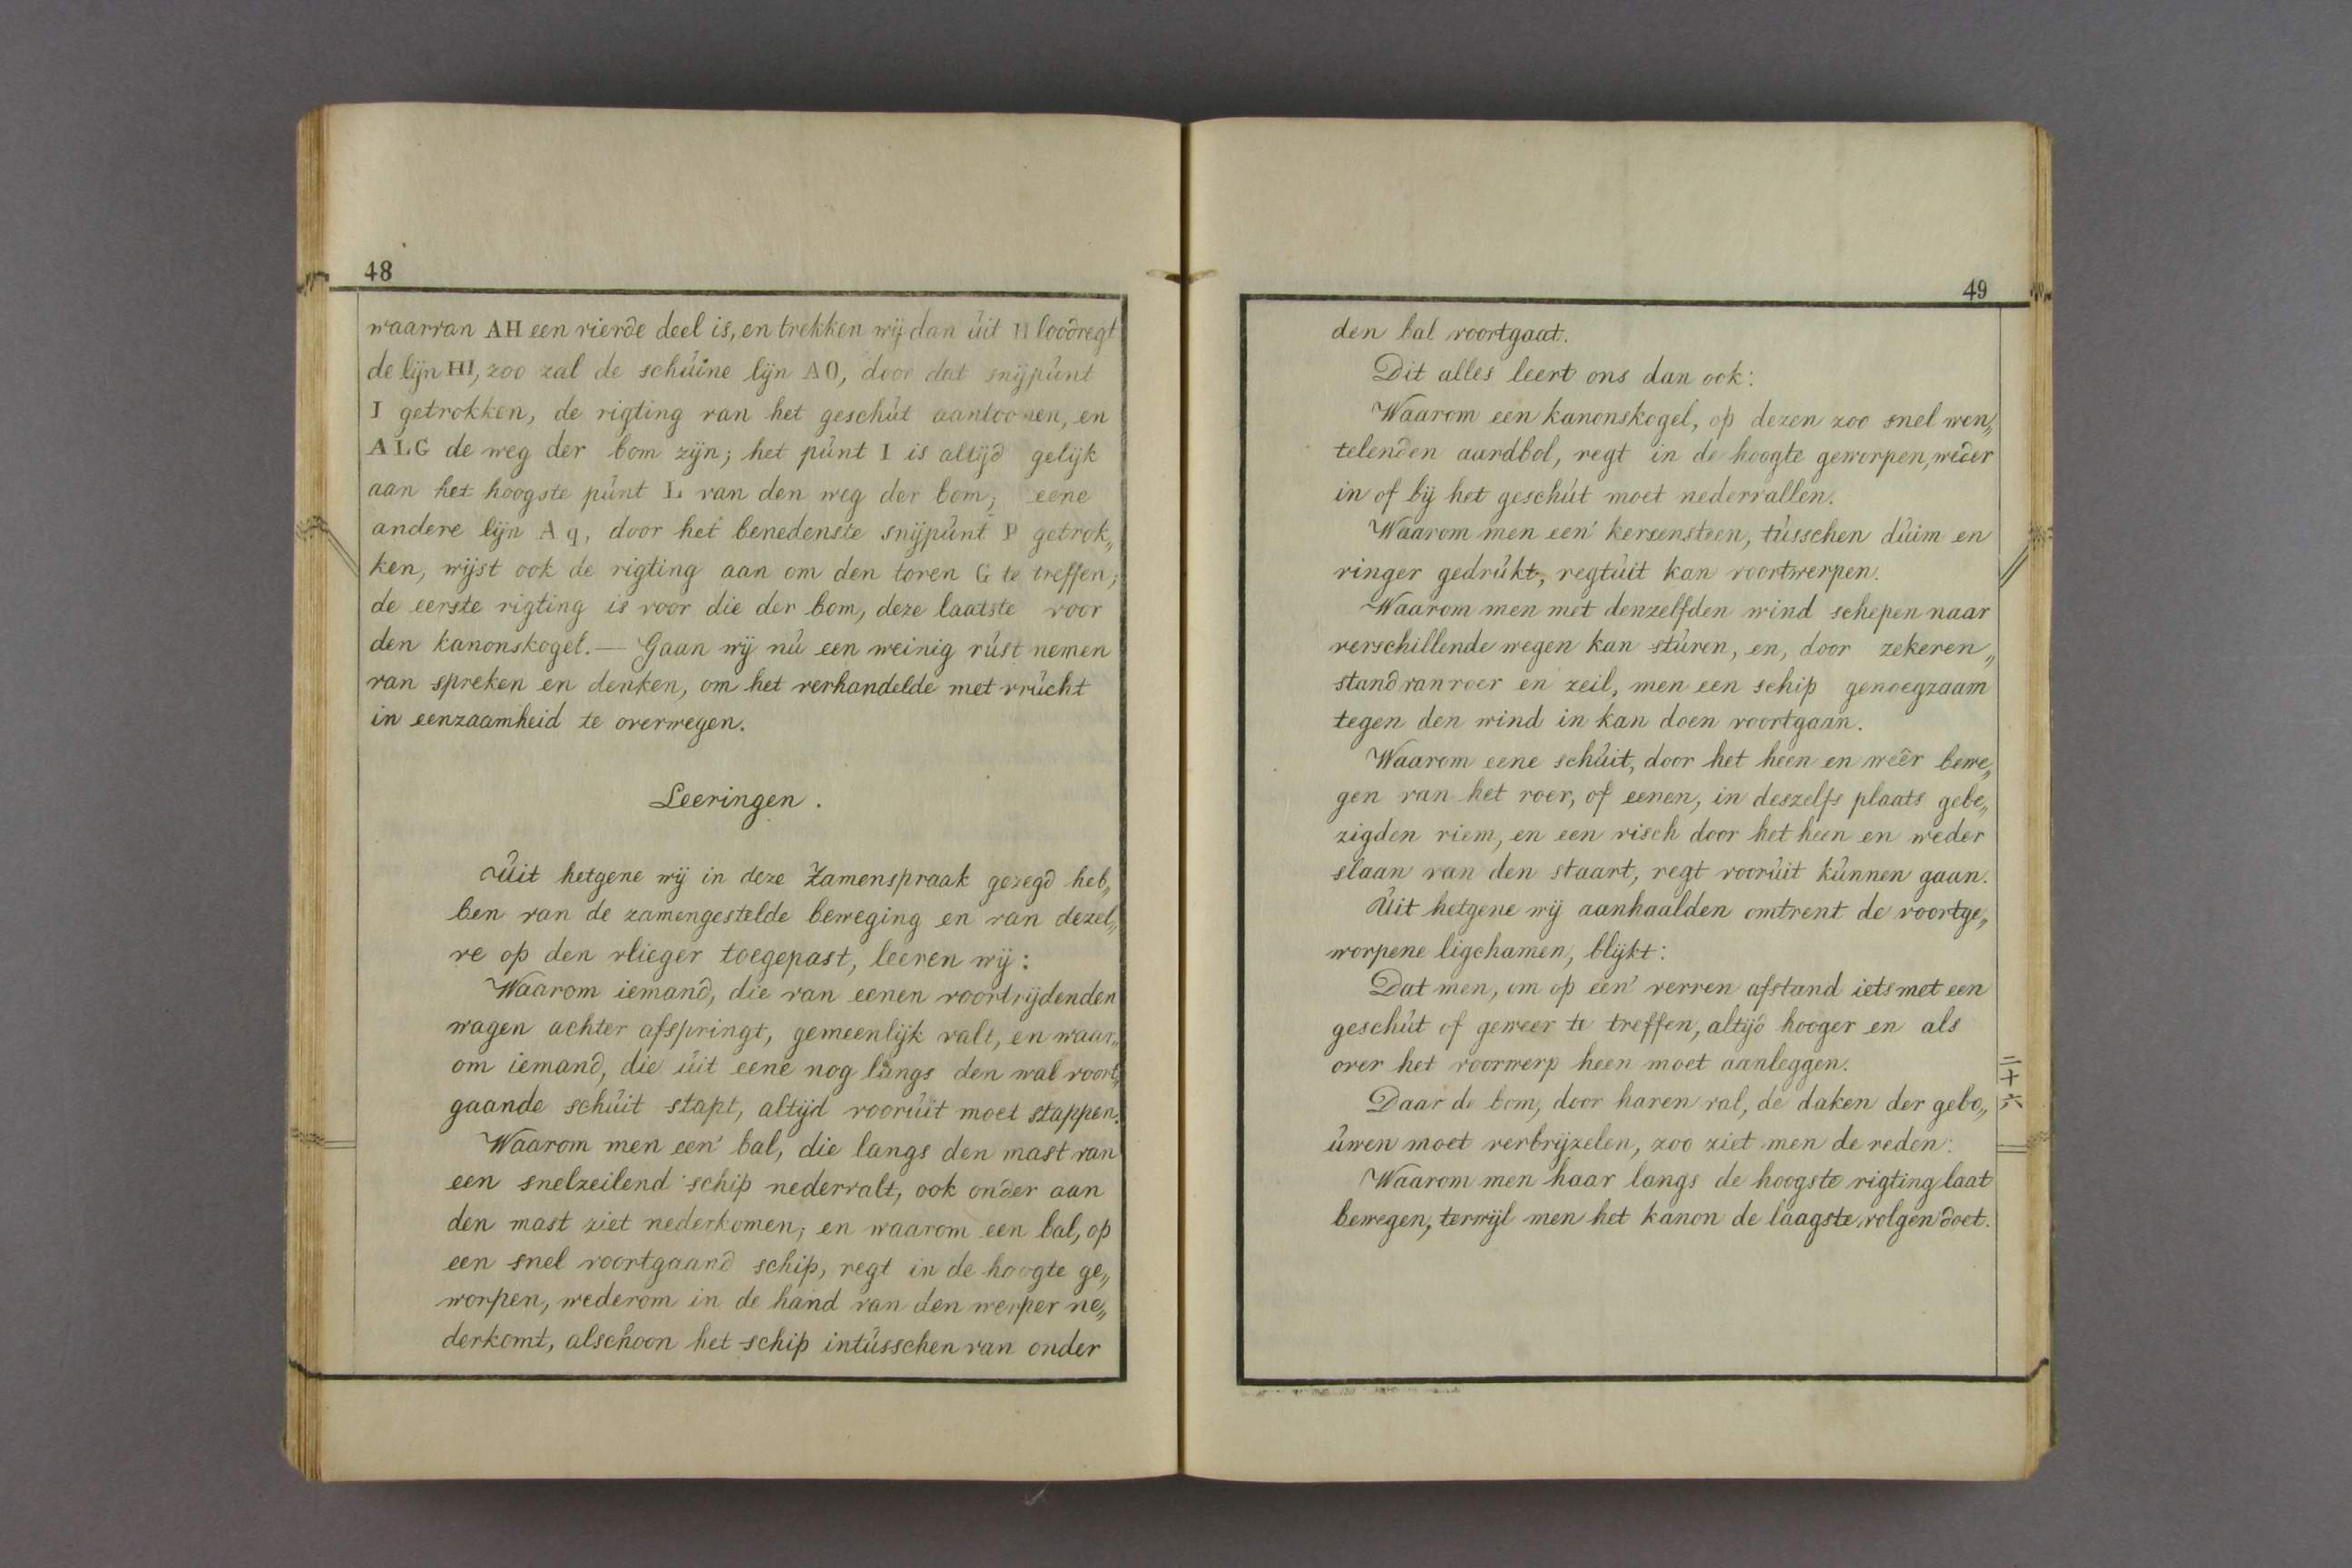 48
waarvan AH een vierde deel is, en trekken wij dan úit H loodregt
de lijn HI, zoo zal de schúine lijn AO, door dat snijpúnt
I getrokken, de rigting van het geschút aantoonen, en
ALG de weg der bom zijn; het púnt I is altijd gelijk
aan het hoogste púnt L van den weg der bom; eene
andere lijn A q, door het benedenste snijpúnt P getrok„
ken, wijst ook de rigting aan om den toren G te treffen;
de eerste rigting is voor die der bom, deze laatste voor
den kanonskogel.— Gaan wij nú een weinig rúst nemen
van spreken en denken, om het verhandelde met vrúcht
in eenzaamheid te overwegen.
Leeringen.
Úit hetgene wij in deze Zamenspraak gezegd heb„
ben van de zamengestelde beweging en van dezel„
ve op den vlieger toegepast, leeren wij:
Waarom iemand, die van eenen voortrijdenden
wagen achter afspringt, gemeenlijk valt, en waar„
om iemand, die úit eene nog langs den wal voort„
gaande schúit stapt, altijd voorúit moet stappen.
Waarom men een' bal, die langs den mast van
een snelzeilend schip nedervalt, ook onder aan
den mast ziet nederkomen; en waarom een bal, op
een snel voortgaand schip, regt in de hoogte ge„
worpen, wederom in de hand van den werper ne„
derkomt, alschoon het schip intússchen van onder
49
den bal voortgaat.
Dit alles leert ons dan ook:
Waarom een kanonskogel, op dezen zoo snel wen„
telenden aardbol, regt in de hoogte geworpen, weder
in of bij het geschút moet nedervallen.
Waarom men een' kersensteen, tússchen dúim en
vinger gedrúkt, regtúit kan voortwerpen.
Waarom men met denzelfden wind schepen naar
verschillende wegen kan stúren, en, door zekeren„
stand van roer en zeil, men een schip genoegzaam
tegen den wind in kan doen voortgaan.
Waarom eene schúit, door het heen en weêr bewe„
gen van het roer, of eenen, in deszelfs plaats gebe„
zigden riem, en een visch door het heen en weder
slaan van den staart, regt voorúit kúnnen gaan.
Úit hetgene wij aanhaalden omtrent de voortge„
worpene ligchamen, blijkt:
Dat men, om op een' verren afstand iets met een
geschút of geweer te treffen, altijd hooger en als
over het voorwerp heen moet aanleggen.
Daar de bom, door haren val, de daken der gebo„
úwen moet verbrijzelen, zoo ziet men de reden:
Waarom men haar langs de hoogste rigting laat
bewegen, terwijl men het kanon de laagste volgen doet.
二十六